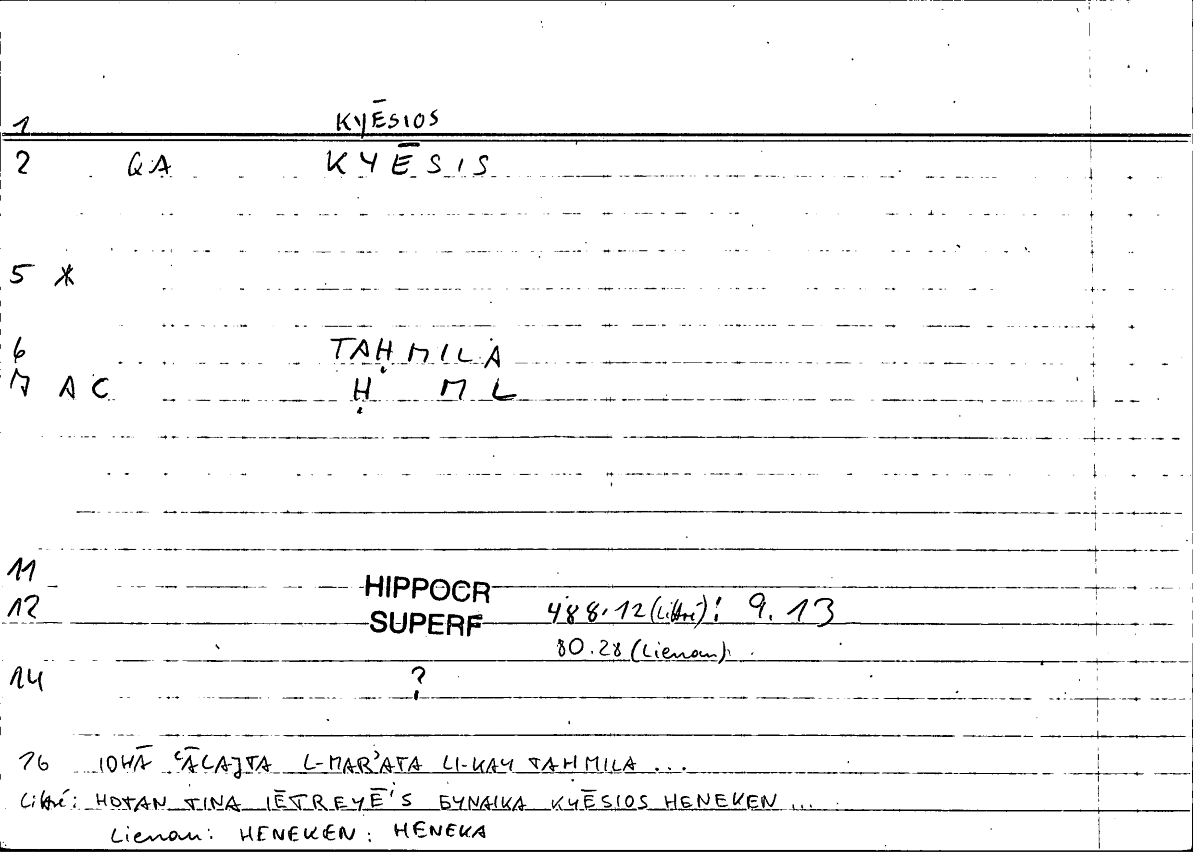 1 KYĒSIOS
2 QA KYĒSIS
5 *
6 TAḤMILA
7 AC Ḥ M L
11
12 HIPPOCR
SUPERF 488.12 (Littré): 9.13
80.28 (Lienau)
14 ?
16 IDHĀ ʿĀLAJTA L-MARʾATA LI-KAY TAHMILA ...
Littré: HOTAN TINA IĒTREYĒIS GYNAIKA KYĒSIOS HENEKEN ...
Lienau: HENEKEN: HENEKA